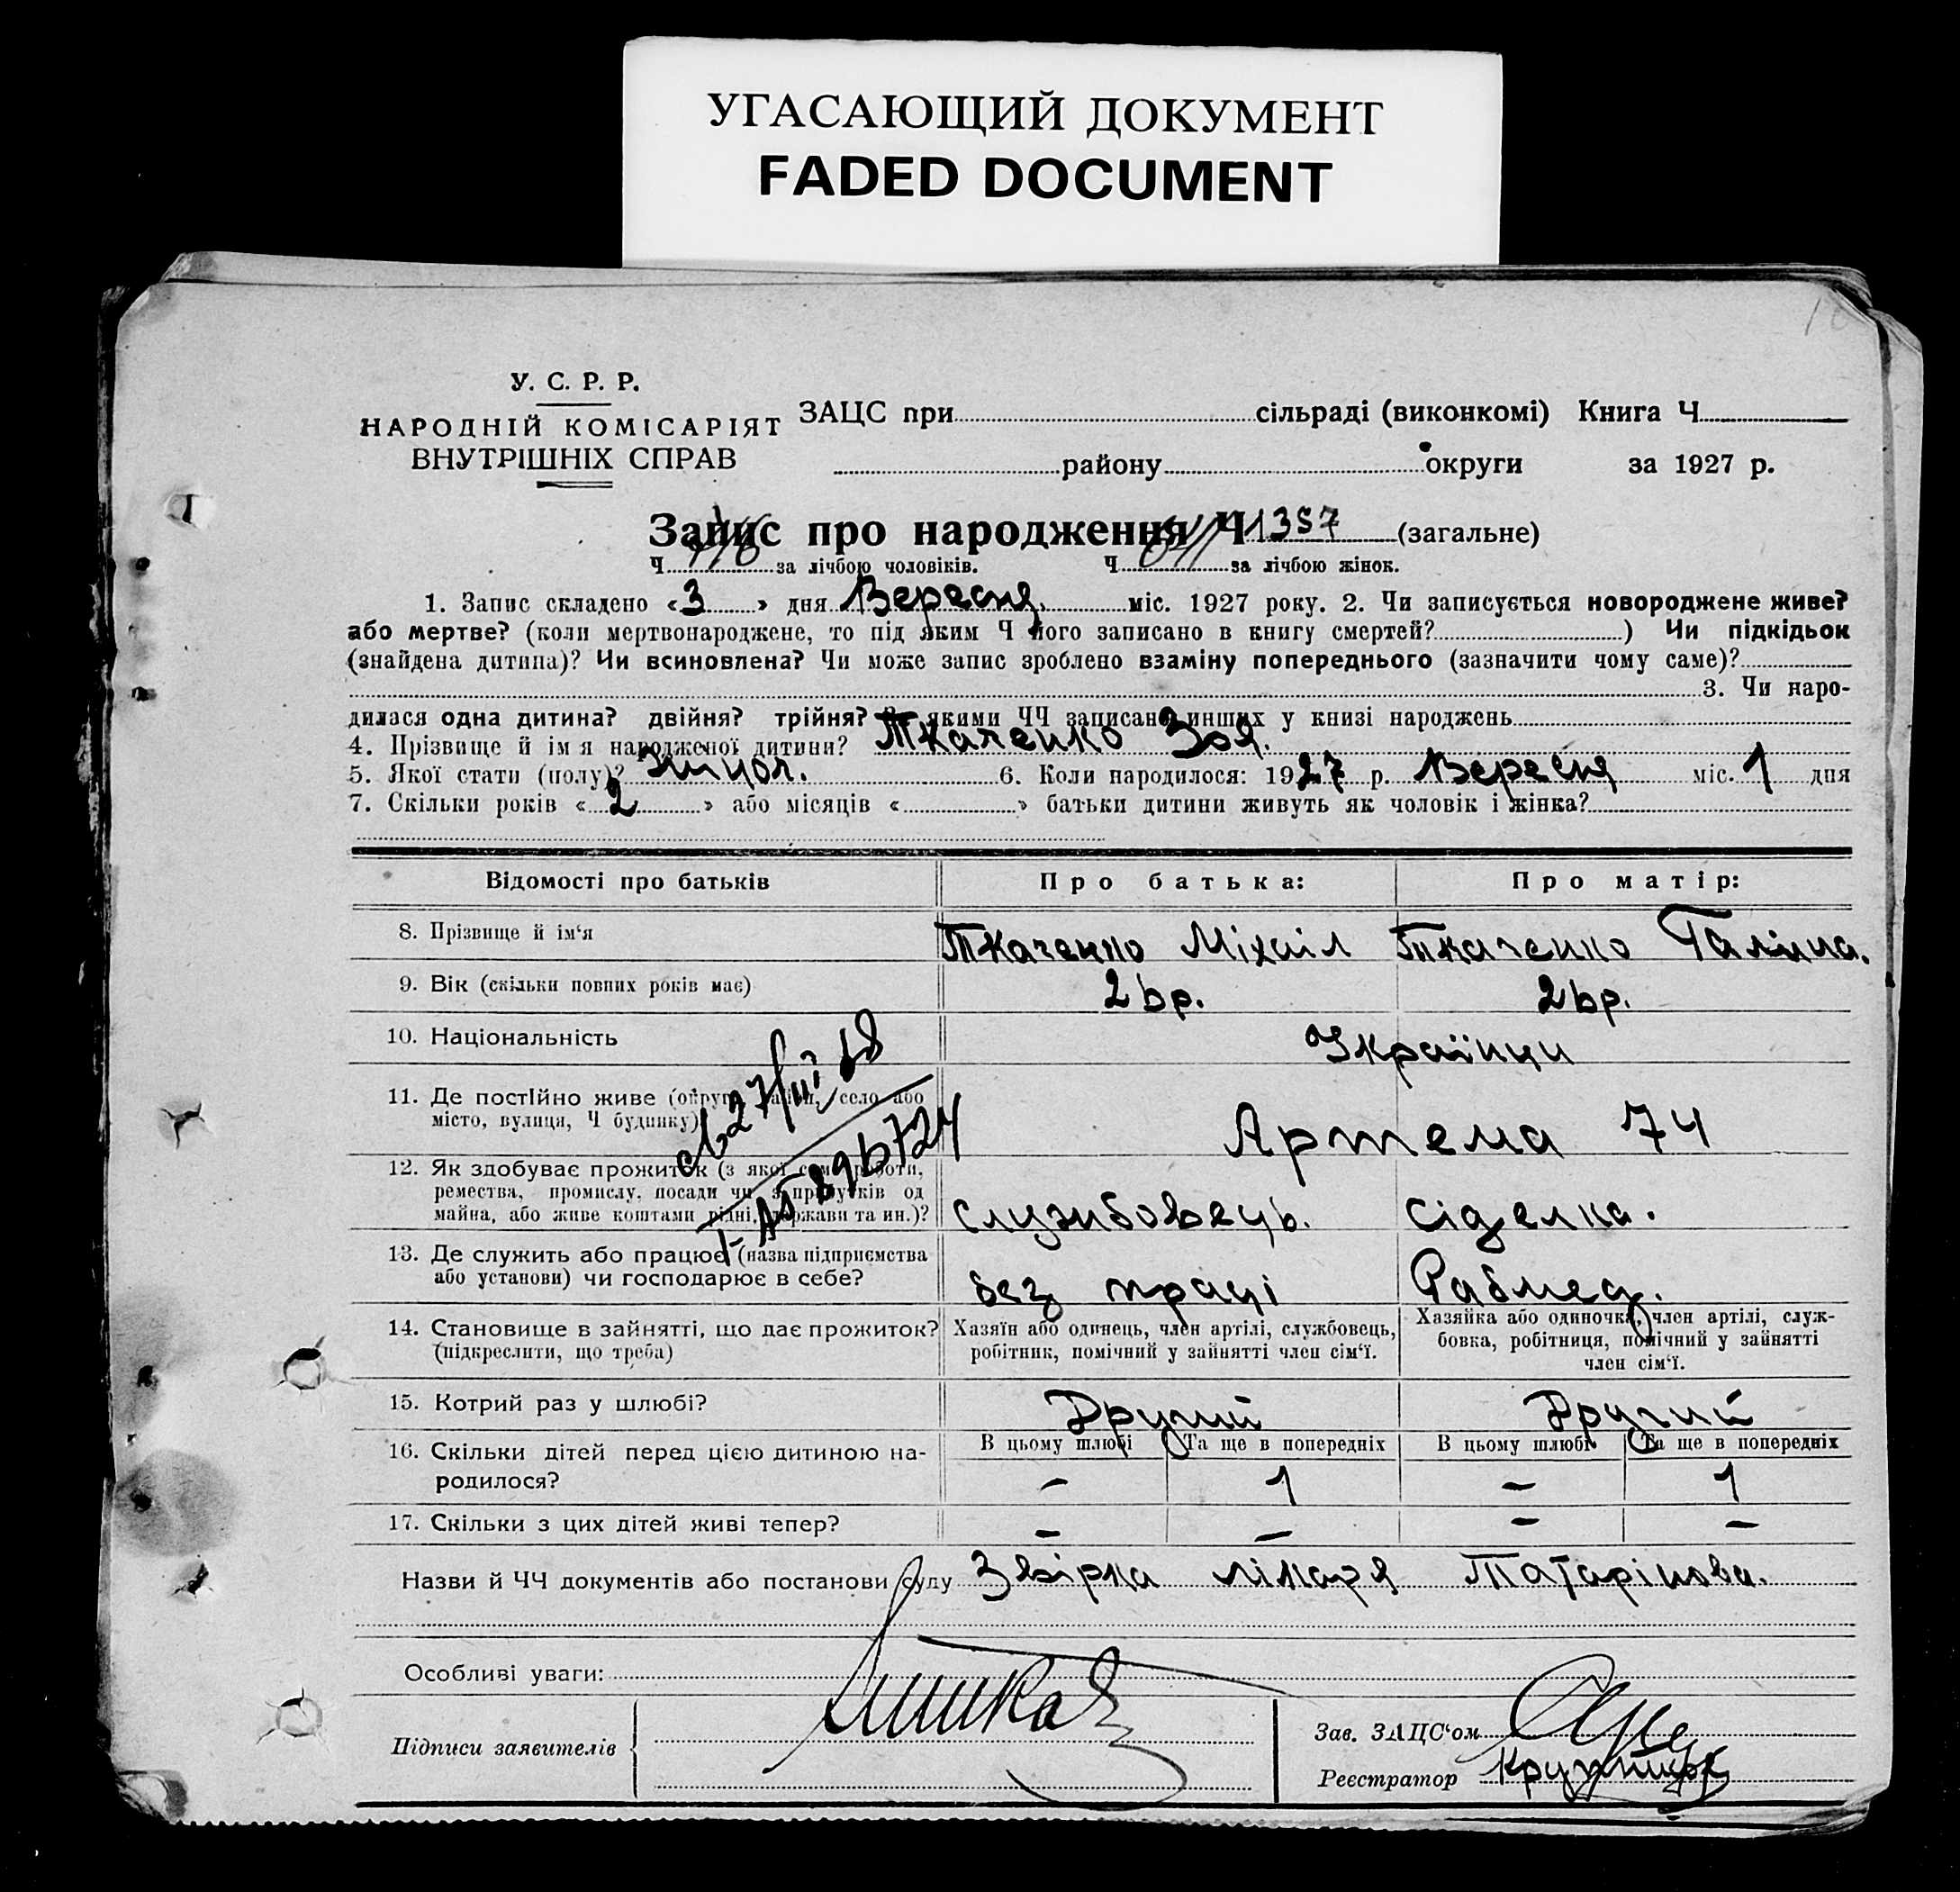 УГАСАЮЩИЙ ДОКУМЕНТ
FADED DOCUMENT
У. С. Р. Р.
НАРОДНІЙ КОМІСАРІЯТ
ВНУТРІШНІХ СПРАВ
ЗАЦС при сільраді (виконкомі) Книга Ч
району округи за 1927 р.
Запис про народження Ч 1387 (загальне)
Ч за лічбою чоловіків. Ч за лічбою жінок.
1. Запис складено «3» дня Вересня міс. 1927 року. 2. Чи записується новороджене живе?
або мертве? (коли мертвонароджене, то під яким Ч його записано в книгу смертей?) Чи підкідьок
(знайдена дитина)? Чи всиновлена? Чи може запис зроблено взаміну попереднього (зазначити чому саме)?
3. Чи наро-
дилася одна дитина? двійня? трійня? якими ЧЧ записано инших у книзі народжень
4. Прізвище й ім я народженої дитини? Ткаченко Зоя.
5. Якої стати (полу)? жіноч. 6. Коли народилося: 1927 р. Вересня міс. 1 дня
7. Скільки років «2» або місяців « » батьки дитини живуть як чоловік і жінка?
Відомості про батьків Про батька: Про матір:
8. Прізвище й ім‘я Ткаченко Міхаіл Ткаченко Галіна.
9. Вік (скільки повних років має) 26р. 26р.
10. Національність Українци
11. Де постійно живе (округ, район, село або
місто, вулиця, Ч будинку) Артема 74
12. Як здобуває прожиток (з якої саме роботи,
ремества, промислу, посади чи з прибутків од
майна, або живе коштами рідні, держави та ин.)? службовець. сіделка.
13. Де служить або працює (назва підприємства
або установи) чи господарює в себе? без праці Рабмед.
14. Становище в зайнятті, що дає прожиток?
(підкреслити, що треба)
Хазяїн або одинець, член артілі, службовець,
робітник, помічний у зайнятті член сім‘ї.
Хазяйка або одиночка, член артілі, служ-
бовка, робітниця, помічний у зайнятті
член сім‘ї.
15. Котрий раз у шлюбі? Другий Другий
16. Скільки дітей перед цією дитиною на-
родилося?
В цьому шлюбі Та ще в попередніх В цьому шлюбі Та ще в попередніх
- 1 - 1
17. Скільки з цих дітей живі тепер? - - - -
Назви й ЧЧ документів або постанови суду Звірка лікаря Татарінова.
Особливі уваги:
Підписи заявителів
Зав. ЗАЦС‘ом
Реєстратор